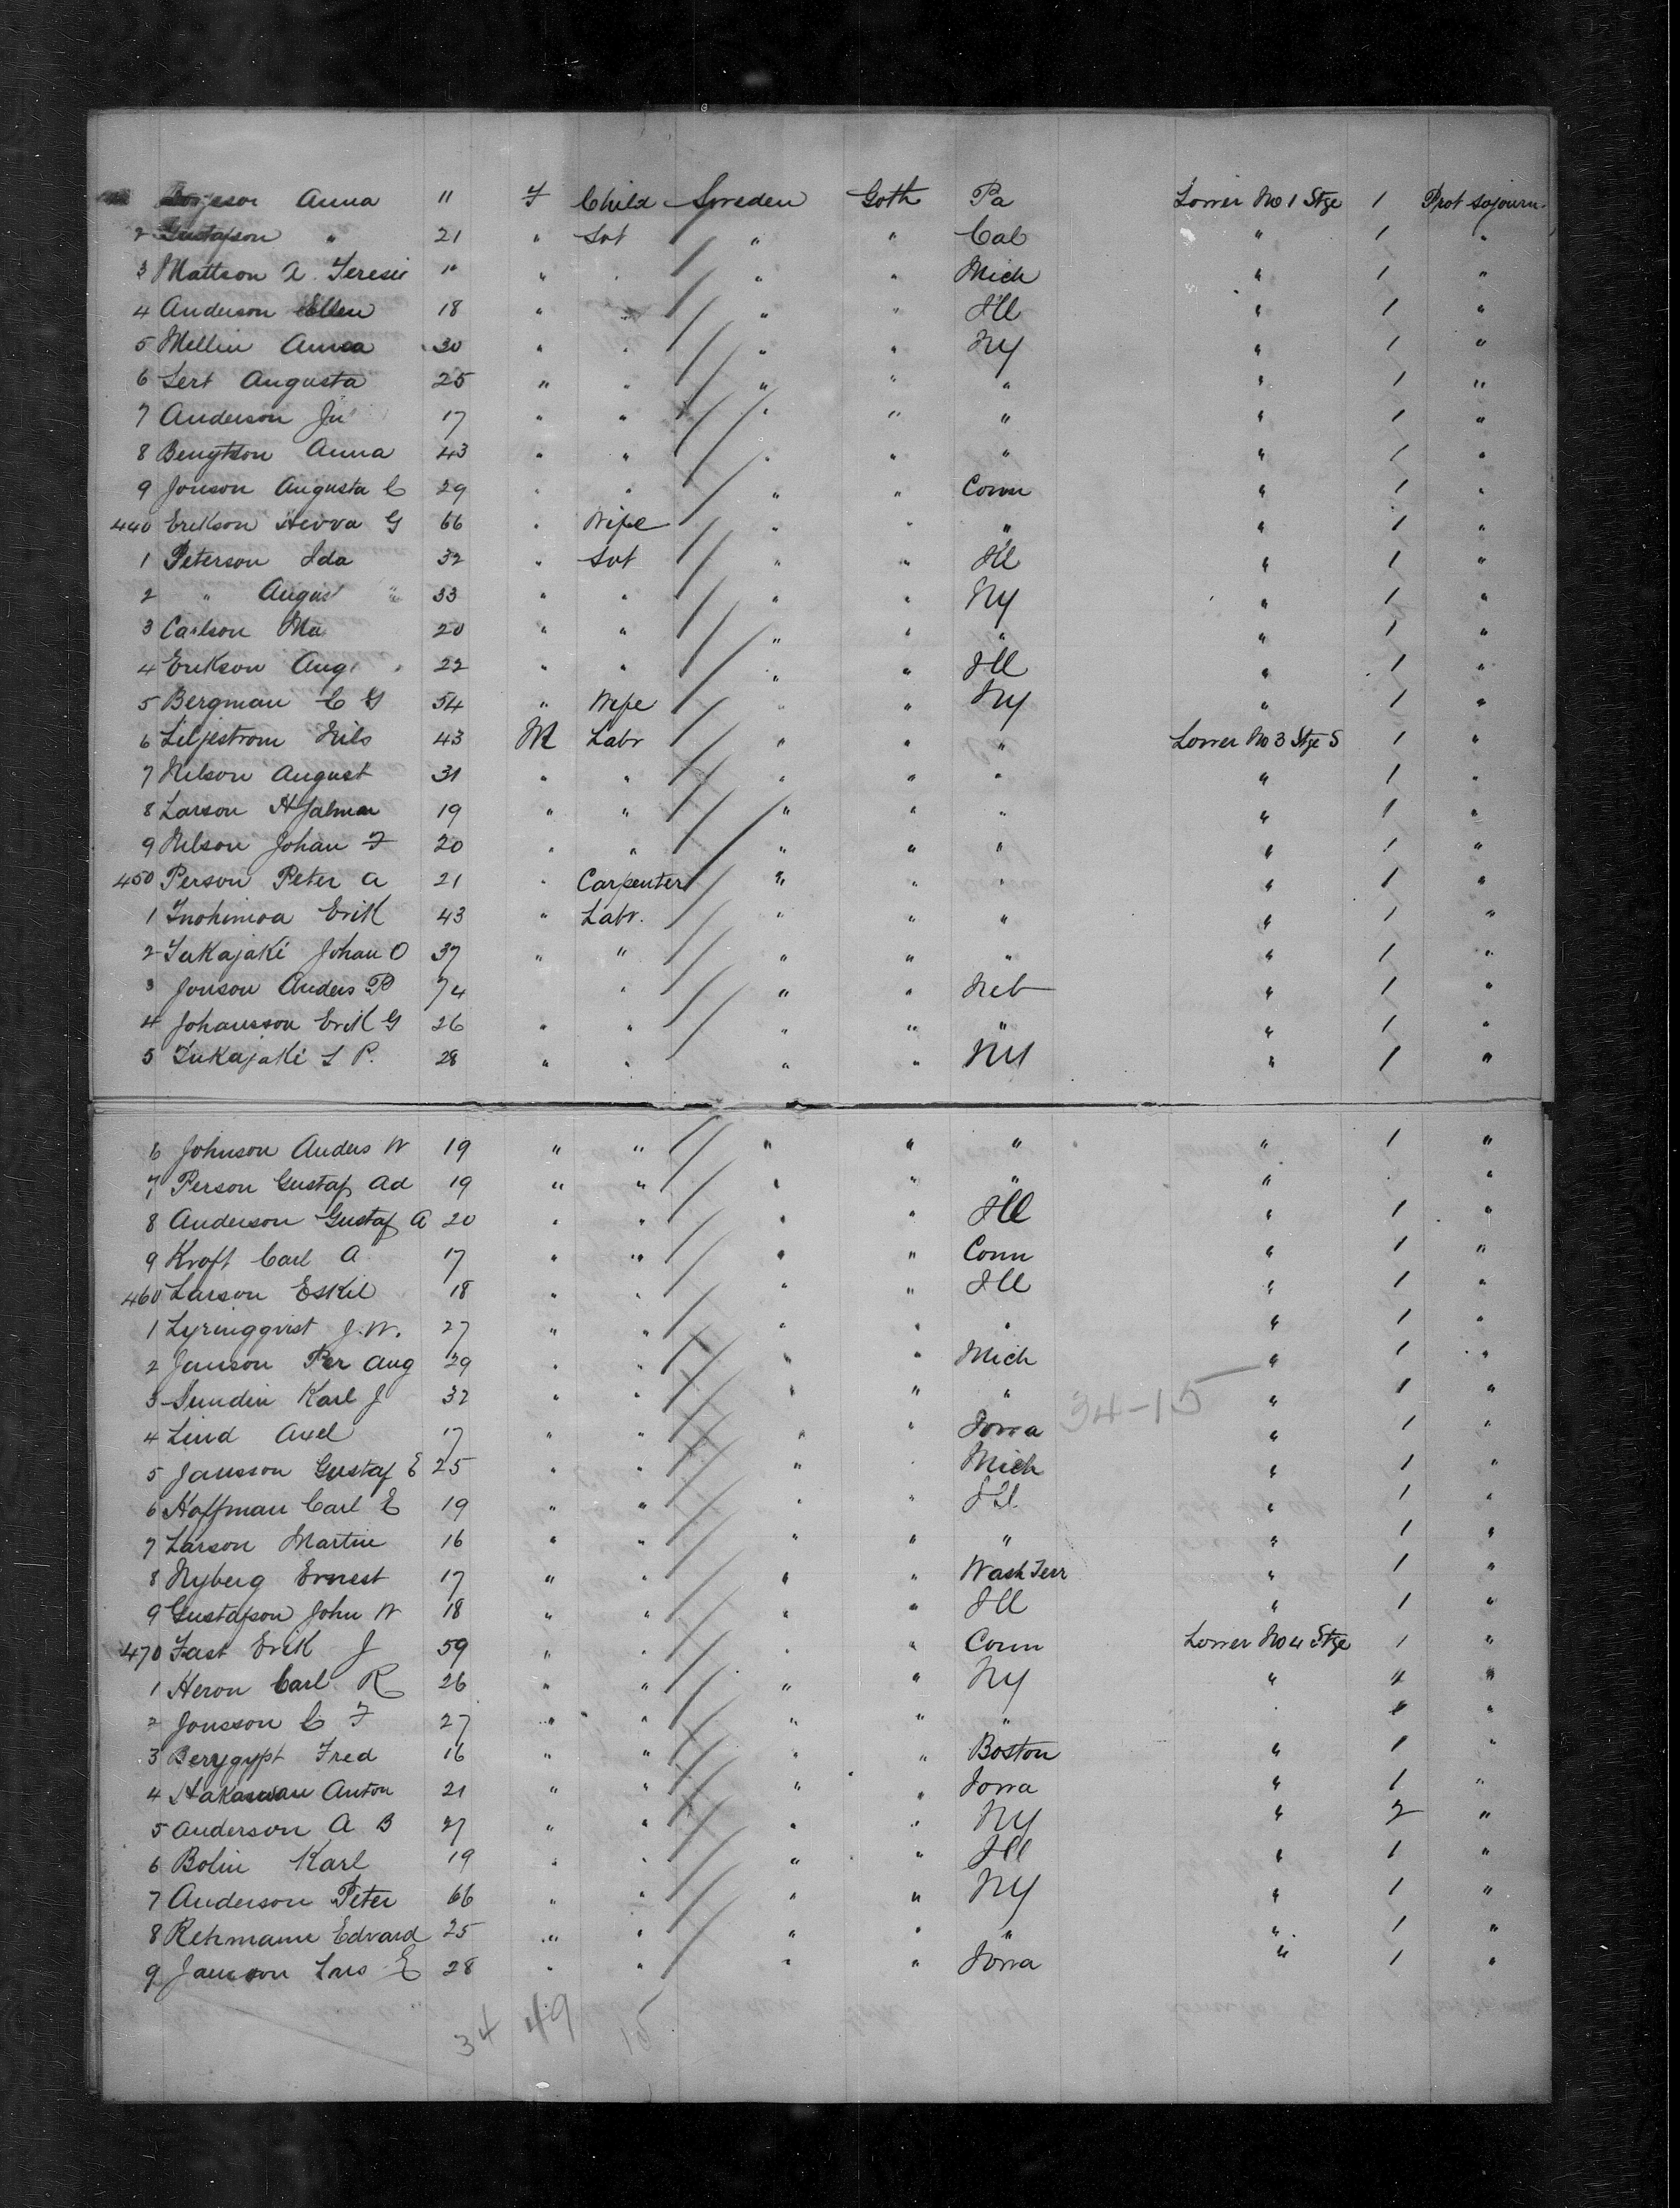 Borjeson Anna 11 F Child Sweden Goth Pa Lower No 1 Stge 1 Prot sojourn
2 Gustafson " 21 " Svt " " Cal " 1 "
3 Mattson A. " " " " " Mich " 1 "
4 Anderson Ellen 18 " " " " Ill " 1 "
5 Mellin Anna 30 " " " " NY " 1 "
6 Sert Augusta 25 " " " " " " 1 "
7 Anderson 17 " " " " " " 1 "
8 Bengtson Anna 43 " " " " " " 1 "
9 Jonson Augusta C 29 " " " " Conn " 1 "
440 Erikson G 66 " Wife " " " " 1 "
1 Peterson Ida 32 " Svt " " Ill " 1 "
2 " August " 33 " " " " NY " 1 "
3 Carlson Ma 20 " " " " " " 1 "
4 Erikson Aug 22 " " " " Ill " 1 "
5 Bergman C G 54 " Wife " " NY " 1 "
6 Liljestrom Nils 43 M Labr " " " Lower No 3 Stge S 1 "
7 Nilson August 31 " " " " " " 1 "
8 Larson Hjalmar 19 " " " " " " 1 "
9 Nilson Johan F 20 " " " " " " 1 "
450 Person Peter A 21 " Carpenter " " " " 1 "
1 Erik 43 " Labr. " " " " 1 "
2 Johan O 37 " " " " " " 1 "
3 Jonson Anders P 74 " " " Neb " 1 "
4 Johansson Erik G 26 " " " " " " 1 "
5 L P. 28 " " " " NY " 1 "
6 Johnson Anders W 19 " " " " " " 1 "
7 Person Gustaf Ad 19 " " " " " " "
8 Anderson Gustaf A 20 " " " " Ill " 1 "
9 Kroft Carl A 17 " " " " Conn " 1 "
460 Larson Eskil 18 " " " " Ill " 1 "
1 Lyringqvist J.W. 27 " " " " " " 1 "
2 Janson Per Aug 29 " " " " Mich " 1 "
3 Sundin Karl J 32 " " " " " 34-15 " 1 "
4 Lind Axel 17 " " " " Iowa " 1 "
5 Jansson Gustaf E 25 " " " " Mich " 1 "
6 Hoffman Carl E 19 " " " " Ill " 1 "
7 Larson Martin 16 " " " " " " 1 "
8 Nyberg Ernest 17 " " " " Wash Terr " 1 "
9 Gustafson John W 18 " " " " Ill " 1 "
470 Fast Erik J 59 " " " " Conn Lower No 4 Stge 1 "
1 Heron Carl R 26 " " " " NY " " "
2 Jonsson C F 27 " " " " " "
3 Fred 16 " " " " Boston " 1 "
4 Anton 21 " " " " Iowa " 1 "
5 Anderson A B 27 " " " " NY " 2 "
6 Bolin Karl 19 " " " " Ill " 1 "
7 Anderson Peter 66 " " " " NY " 1 "
8 Rehmann Edvard 25 " " " " " " 1 "
9 Janson Lars E 28 " " " " Iowa " 1 "
34 49 15